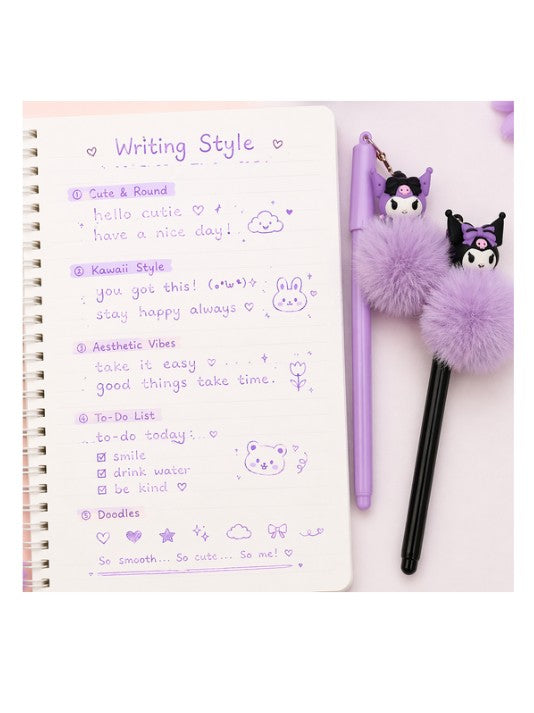 Writing Style
① Cute & Round
hello cutie ♡
have a nice day!
② Kawaii Style
you got this!
stay happy always ♡
③ Aesthetic Vibes
take it easy ♡ ....
good things take time.
④ To-Do List
to-do today: .. ♡
☑ smile
☑ drink water
☑ be kind ♡
⑤ Doodles
So smooth... So cute... So me! ♡